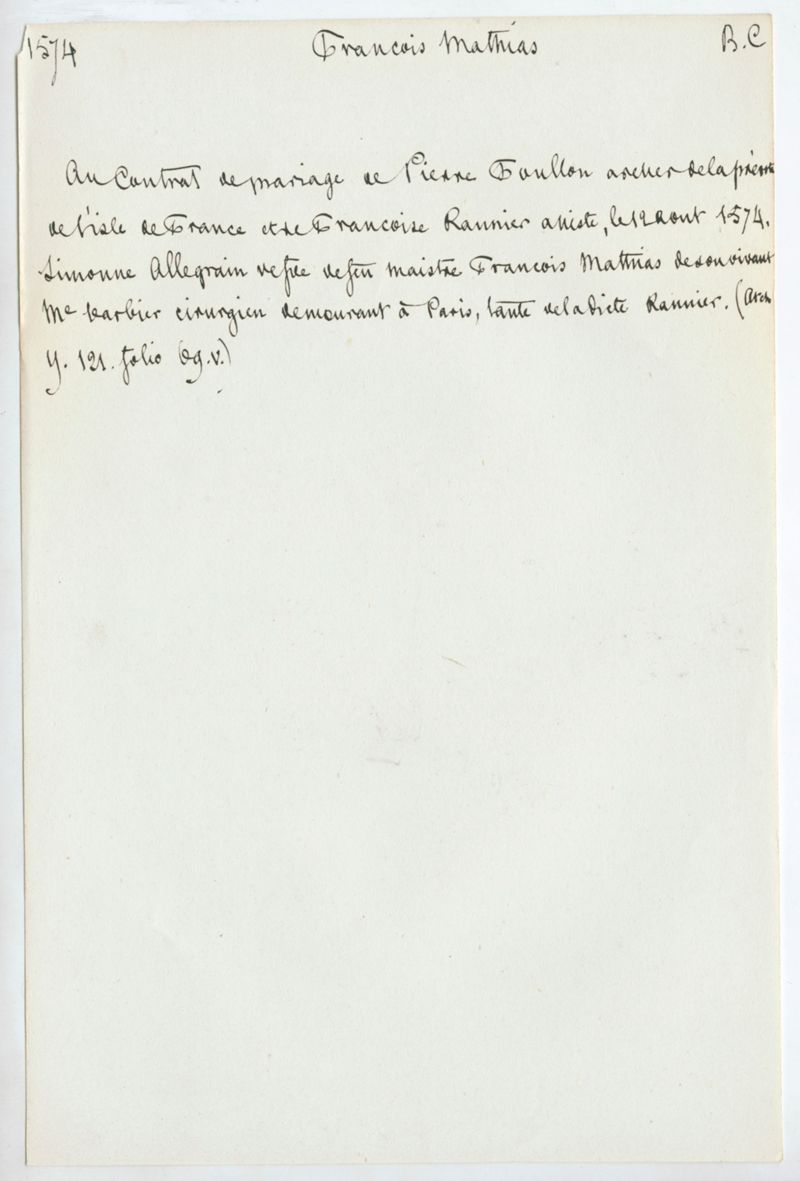 1574 Francois Mathias B.C
Au Contrat de mariage de Pierre Foullon archer de la
de l'isle de France et de Francoise Rannier assiste, le 12 aout 1574.
Simonne Allegrain vefve de feu maistre Francois Mathias de son vivant
Me barbier cirurgien demourant à Paris, tante de la dicte Rannier. (Arch
Y. 121. folio v.)